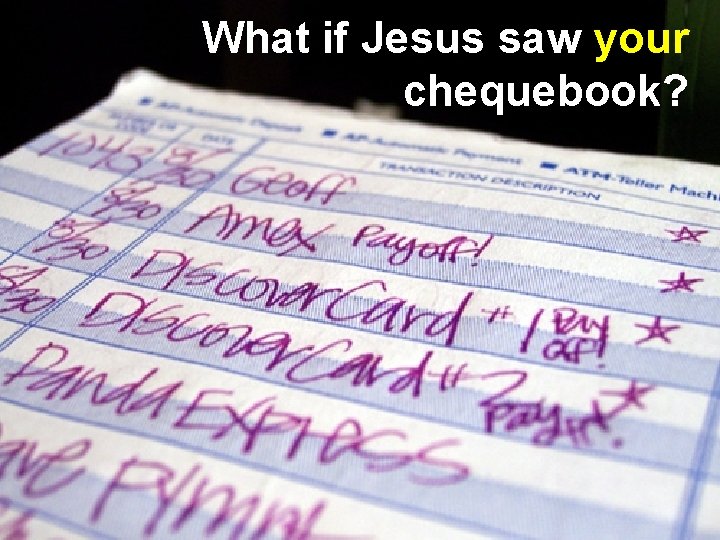 What if Jesus saw your
chequebook?
AP-Automatic Deposit ■ AP-Automatic Payment ■ ATM-Teller Mach
CODE DATE TRANSACTION DESCRIPTION
1043 8/30 Geoff
8/30 Amex Payoff! ☆
8/30 DiscoverCard #1 Pay off! ☆
8/30 DiscoverCard #2 Payoff! ☆
Panda Express
Pymnt